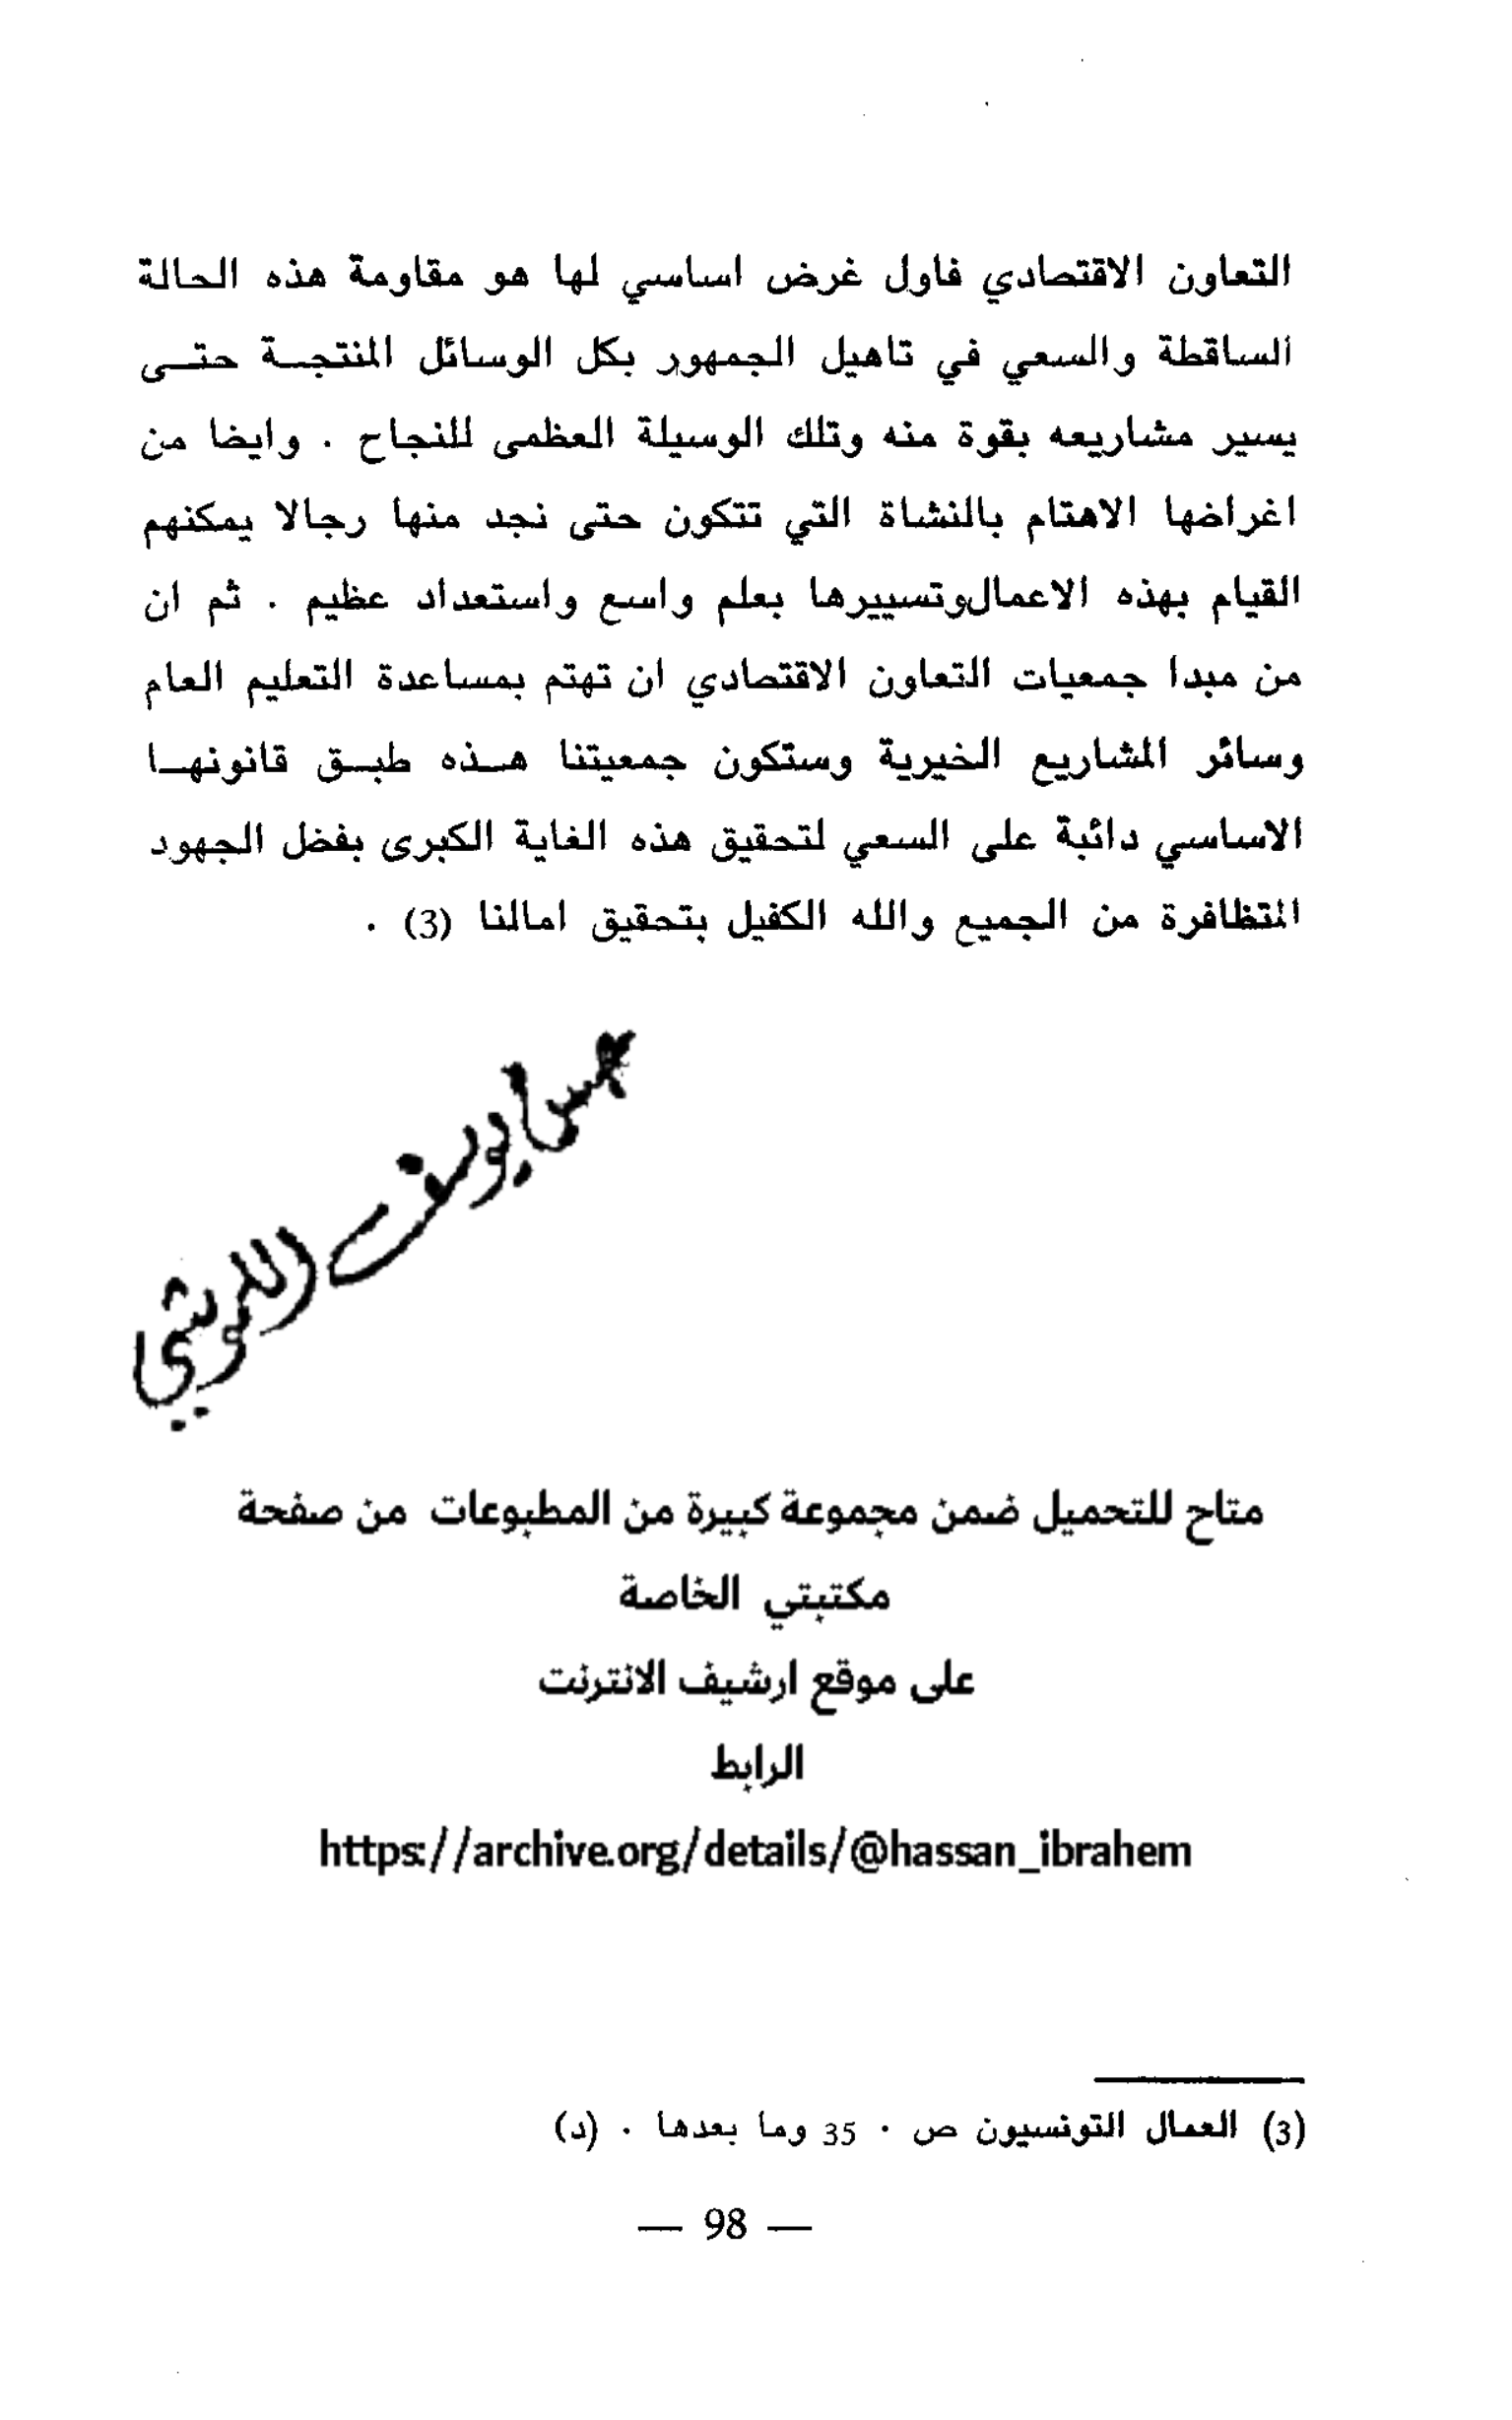 التعاون الاقتصادي فاول غرض اساسي لها هو مقاومة هذه الحالة
الساقطة والسعي في تاهيل الجمهور بكل الوسائل المنتجـة حتـى
يسير مشاريعه بقوة منه وتلك الوسيلة العظمى للنجاح . وايضا من
اغراضها الاهتام بالنشاة التي تتكون حتى نجد منها رجالا يمكنهم
القيام بهذه الاعمال وتسييرها بعلم واسع واستعداد عظيم . ثم ان
من مبدا جمعيات التعاون الاقتصادي ان تهتم بمساعدة التعليم العام
وسائر المشاريع الخيرية وستكون جمعيتنا هـذه طبـق قانونهـا
الاساسي دائبة على السعي لتحقيق هذه الغاية الكبرى بفضل الجهود
المتظافرة من الجميع والله الكفيل بتحقيق امالنا (3) .
يوسف
متاح للتحميل ضمن مجموعة كبيرة من المطبوعات من صفحة
مكتبتي الخاصة
على موقع ارشيف الانترنت
الرابط
https://archive.org/details/@hassan_ibrahem
(3) العمال التونسيون ص . 35 وما بعدها . (د)
— 98 —